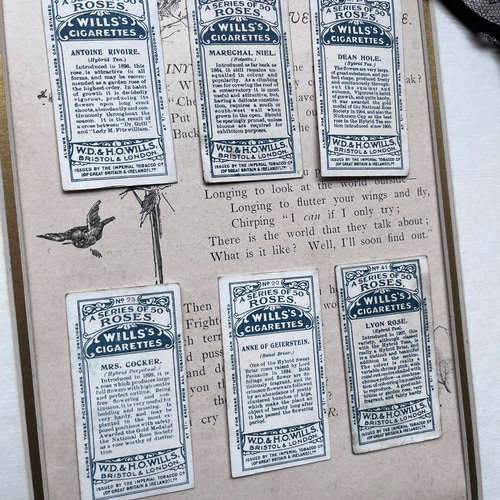 A SERIES OF 50
ROSES.
WILLS'S
CIGARETTES
ANTOINE RIVOIRE.
(Hybrid Tea.)
Introduced in 1896, this
rose is attractive in all
forms, and may be recom-
mended as a garden rose of
the highest order. In habit
of growth it is decidedly
vigorous, producing its
flowers upon long erect
shoots, abundantly and con-
tinuously throughout the
season. It is the result of
a cross between "Dr. Grill"
and "Lady M. Fitzwilliam."
W.D. & H.O. WILLS.
BRISTOL & LONDON.
ISSUED BY THE IMPERIAL TOBACCO CO
(OF GREAT BRITAIN & IRELAND) LTD
A SERIES OF 50
ROSES.
WILLS'S
CIGARETTES
MARECHAL NIEL.
(Noisette.)
Introduced as far back as
1864, it still remains un-
equalled in colour and
popularity. As a climbing
rose for covering the roof of
a conservatory it is most
useful and attractive, but,
having a delicate constitu-
tion, requires a south or
south-west wall when
grown in the open. Should
be sparingly pruned, unless
blooms are required for
exhibition purposes.
W.D. & H.O. WILLS.
BRISTOL & LONDON.
ISSUED BY THE IMPERIAL TOBACCO CO
(OF GREAT BRITAIN & IRELAND) LTD
A SERIES OF 50
ROSES.
WILLS'S
CIGARETTES
DEAN HOLE.
(Hybrid Tea.)
The flowers are very large,
of great substance, and per-
fect shape, produced freely
and continuously throughout
the summer and
autumn. Vigorous in habit
of growth, and quite hardy,
it was awarded the gold
medal of the National Rose
Society in 1904, and also the
Nickerson Cup as the best
rose in the Hybrid Tea sec-
tion introduced since 1900.
W.D. & H.O. WILLS.
BRISTOL & LONDON.
ISSUED BY THE IMPERIAL TOBACCO CO
(OF GREAT BRITAIN & IRELAND) LTD
Longing to look at the world outside
Longing to flutter your wings and fly,
Chirping "I can if I only try;
There is the world that they talk about;
What is it like? Well, I'll soon find out."
Nº 23.
A SERIES OF 50
ROSES.
WILLS'S
CIGARETTES
MRS. COCKER.
(Hybrid Perpetual.)
Introduced in 1899, it is a
rose which produces large
full flowers with high centre
and perfect outline. Being
free flowering and con-
tinuous, it is very useful for
bedding and massing. Is
very hardy, and may be
planted in the most ex-
posed positions with safety.
Awarded the Gold Medal of
the National Rose Society
as a rose worthy of distinc-
tion.
W.D. & H.O. WILLS.
BRISTOL & LONDON.
ISSUED BY THE IMPERIAL TOBACCO CO
(OF GREAT BRITAIN & IRELAND) LTD
Then
Fright
Nº 20
A SERIES OF 50
ROSES.
WILLS'S
CIGARETTES
ANNE OF GEIERSTEIN.
(Sweet Briar.)
One of the Hybrid Sweet
Briar roses raised by Lord
Penzance in 1894. Both
foliage and flowers are de-
liciously fragrant, and its
crimson flowers are followed
by an abundance of large
clustered bunches of hips,
which make the plant an
object of beauty long after
it has passed the flowering
period.
W.D. & H.O. WILLS.
BRISTOL & LONDON.
ISSUED BY THE IMPERIAL TOBACCO CO
(OF GREAT BRITAIN & IRELAND) LTD
Nº 41.
A SERIES OF 50
ROSES.
WILLS'S
CIGARETTES
LYON ROSE.
(Hybrid Tea.)
W.D. & H.O. WILLS.
BRISTOL & LONDON.
ISSUED BY THE IMPERIAL TOBACCO CO
(OF GREAT BRITAIN & IRELAND) LTD